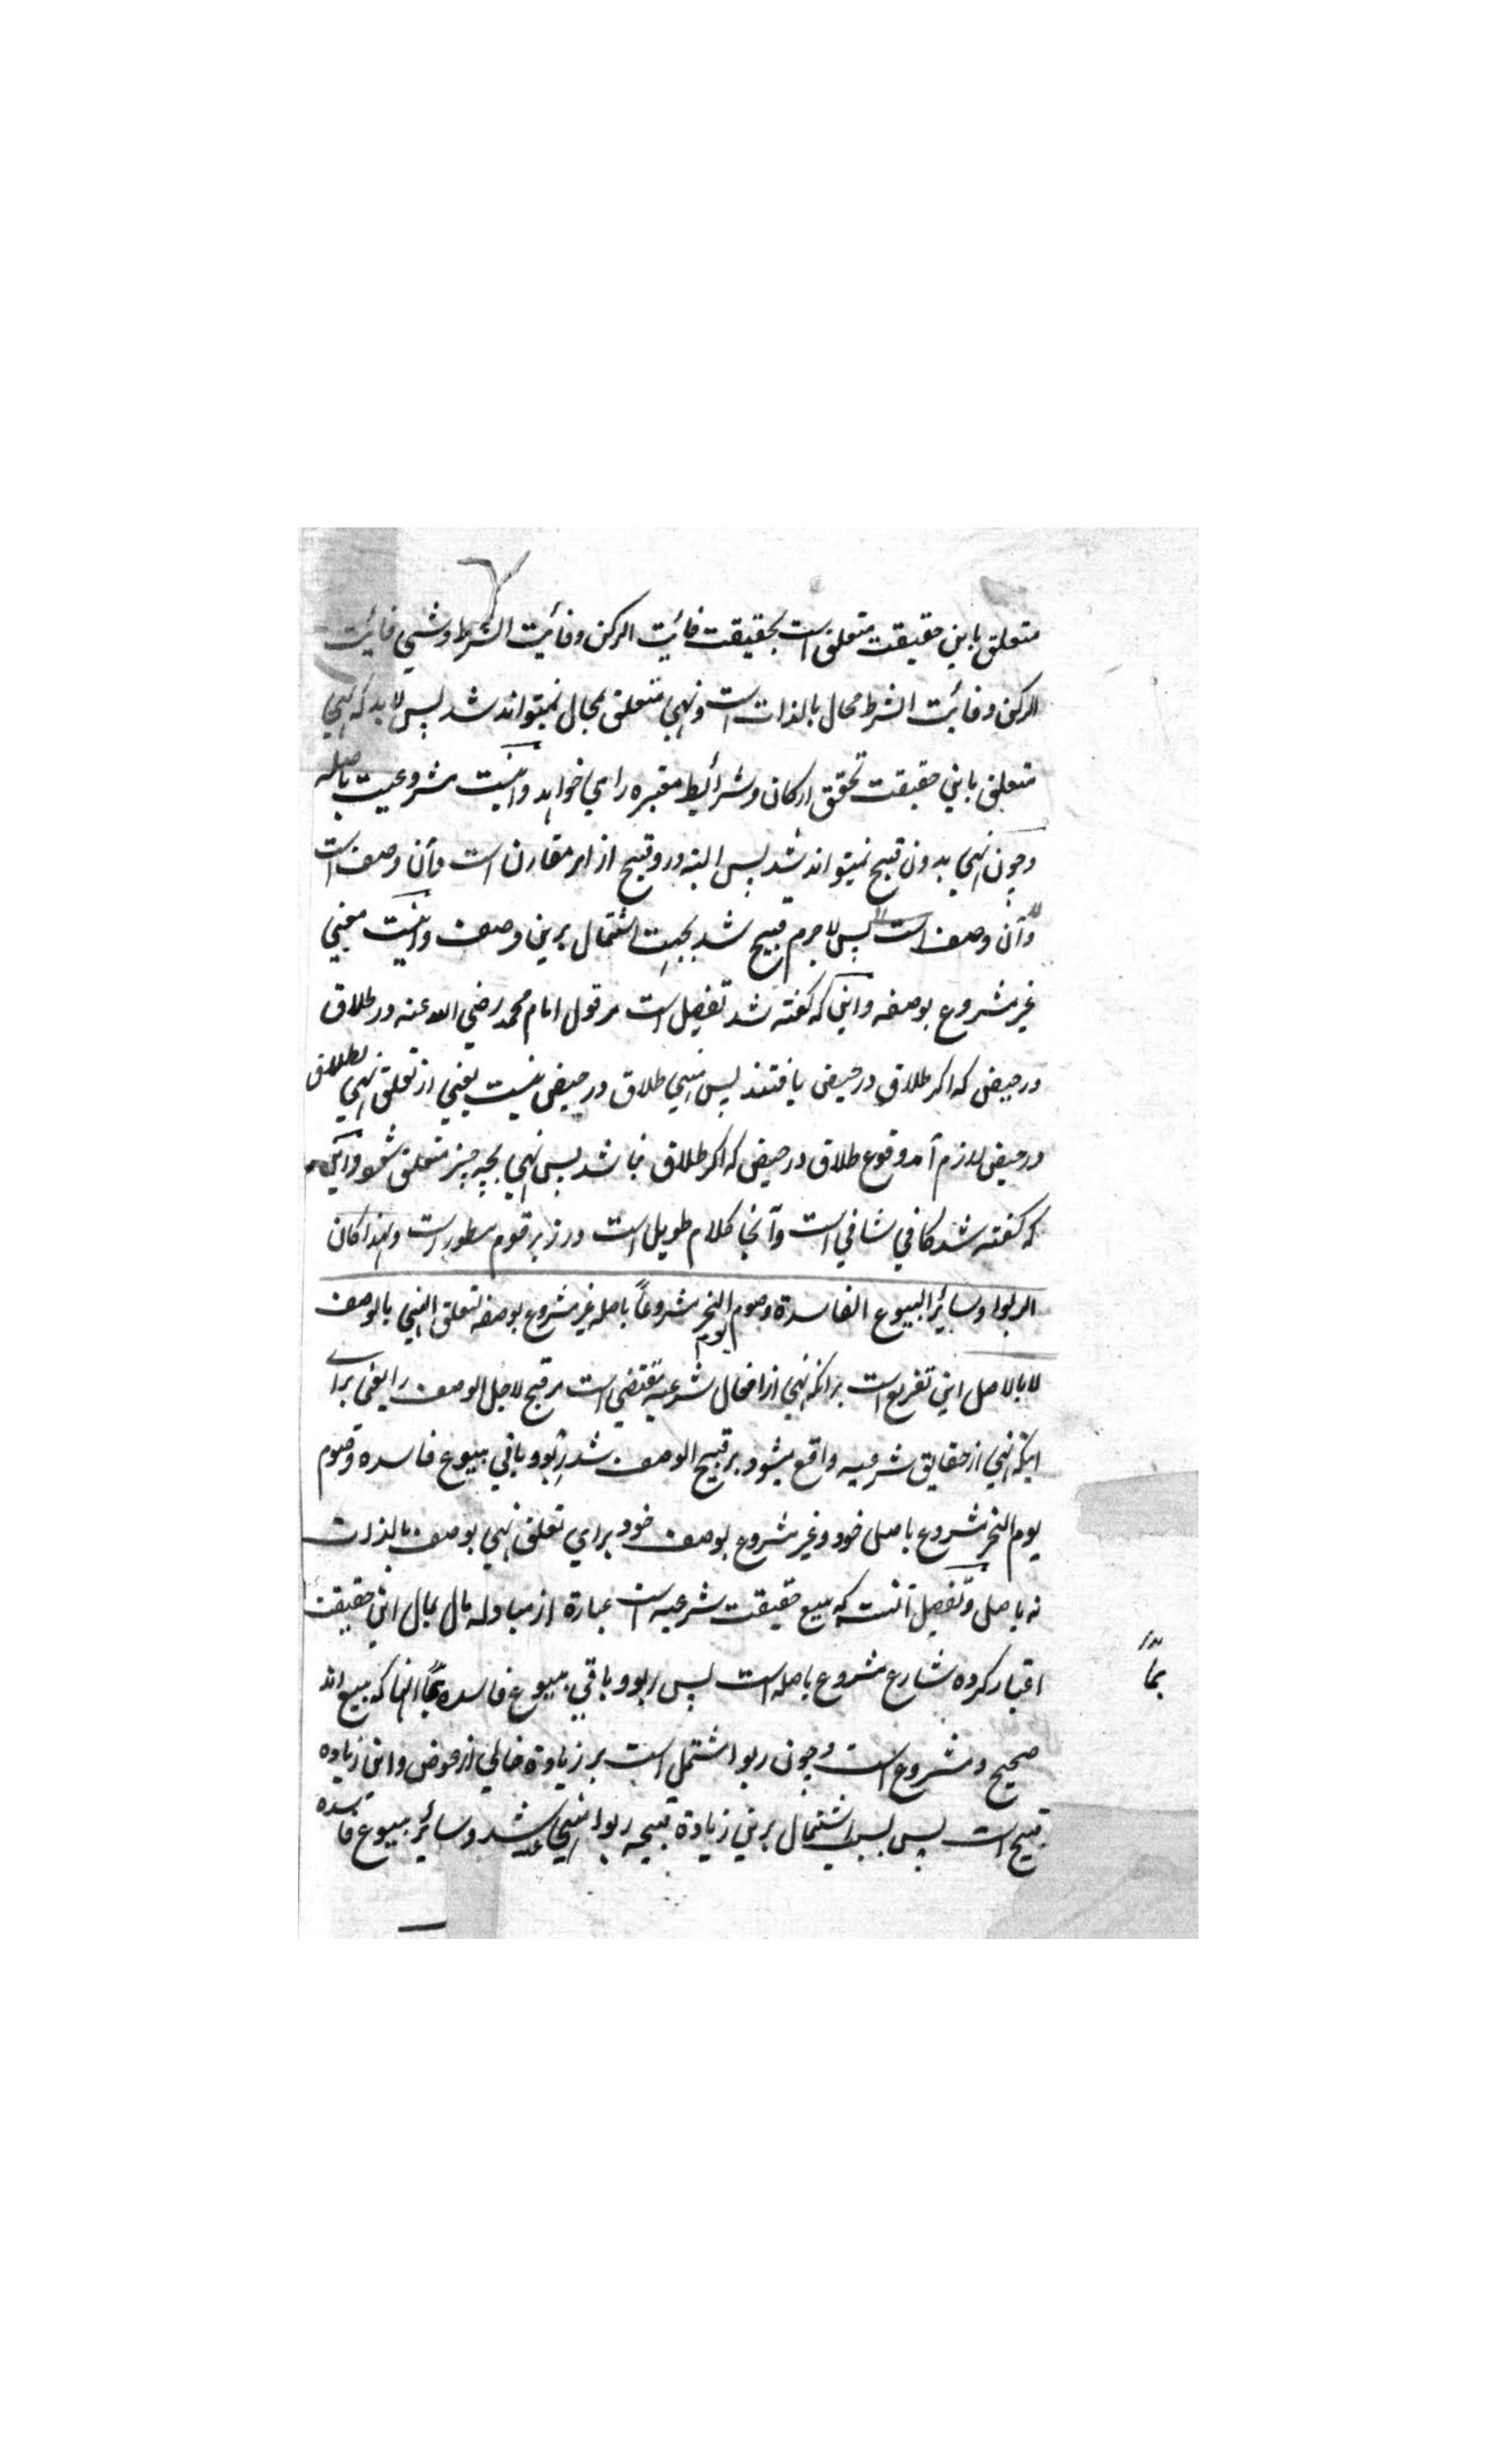 متعلق باین حقیقت متعلق است بحقیقت فائت الرکن وفائت الشرط وشی فائت
الرکن وفائت الشرط محال بالذات است ونهی متعلق بمحال نمیتواند شد پس لابد که نهی
متعلق باین حقیقت تحقق ارکان وشرائط معتبره را می خواهد واینست مشروعیت باصله
وچون نهی بدون قبح نمیتواند شد پس البته درو قبح از امر مقارن است وآن وصف است
وآن وصف است پس لاجرم قبیح شد بجهت اشتمال برین وصف واینست معنی
غیر مشروع بوصفه واین که گفته شد تفصیل است مر قول امام محمد رضی الله عنه در طلاق
در حیض که اکر طلاق در حیض یافتند پس منهی طلاق در حیض نیست یعنی از تعلق نهی بطلاق
در حیض لازم آمد وقوع طلاق در حیض که اکر طلاق نباشد پس نهی بچه چیز متعلق شود واین
که گفته شد کافی شافی است وآنجا کلام طویل است در زبر قوم مسطور است ولهذا کان
الربوا وسائر البیوع الفاسدة وصوم یوم النحر مشروعاً باصله غیر مشروع بوصفه لتعلق النهی بالوصف
لا بالاصل این تفریع است برانکه نهی از افعال شرعیه مقتضی است مر قبح لاجل الوصف را یعنی برای
اینکه نهی از حقایق شرعیه واقع میشود بر قبیح الوصف شد ربوو باقی بیوع فاسده وصوم
یوم النحر مشروع باصل خود وغیر مشروع بوصف خود برای تعلق نهی بوصف بالذات
نه باصل وتفصیل آنست که بیع حقیقت شرعیه است عبارة از مبادله مال بمال این حقیقت
اعتبار کرده شارع مشروع باصله است پس ربوو باقی بیوع فاسده انها که بیع اند
صحیح ومشروع است وچون ربوا مشتمل است بر زیادة خالی از عوض واین زیاده
قبیح است پس بسبب اشتمال برین زیادة قبیحه ربوا منهی عنه شد وسائر بیوع فاسده